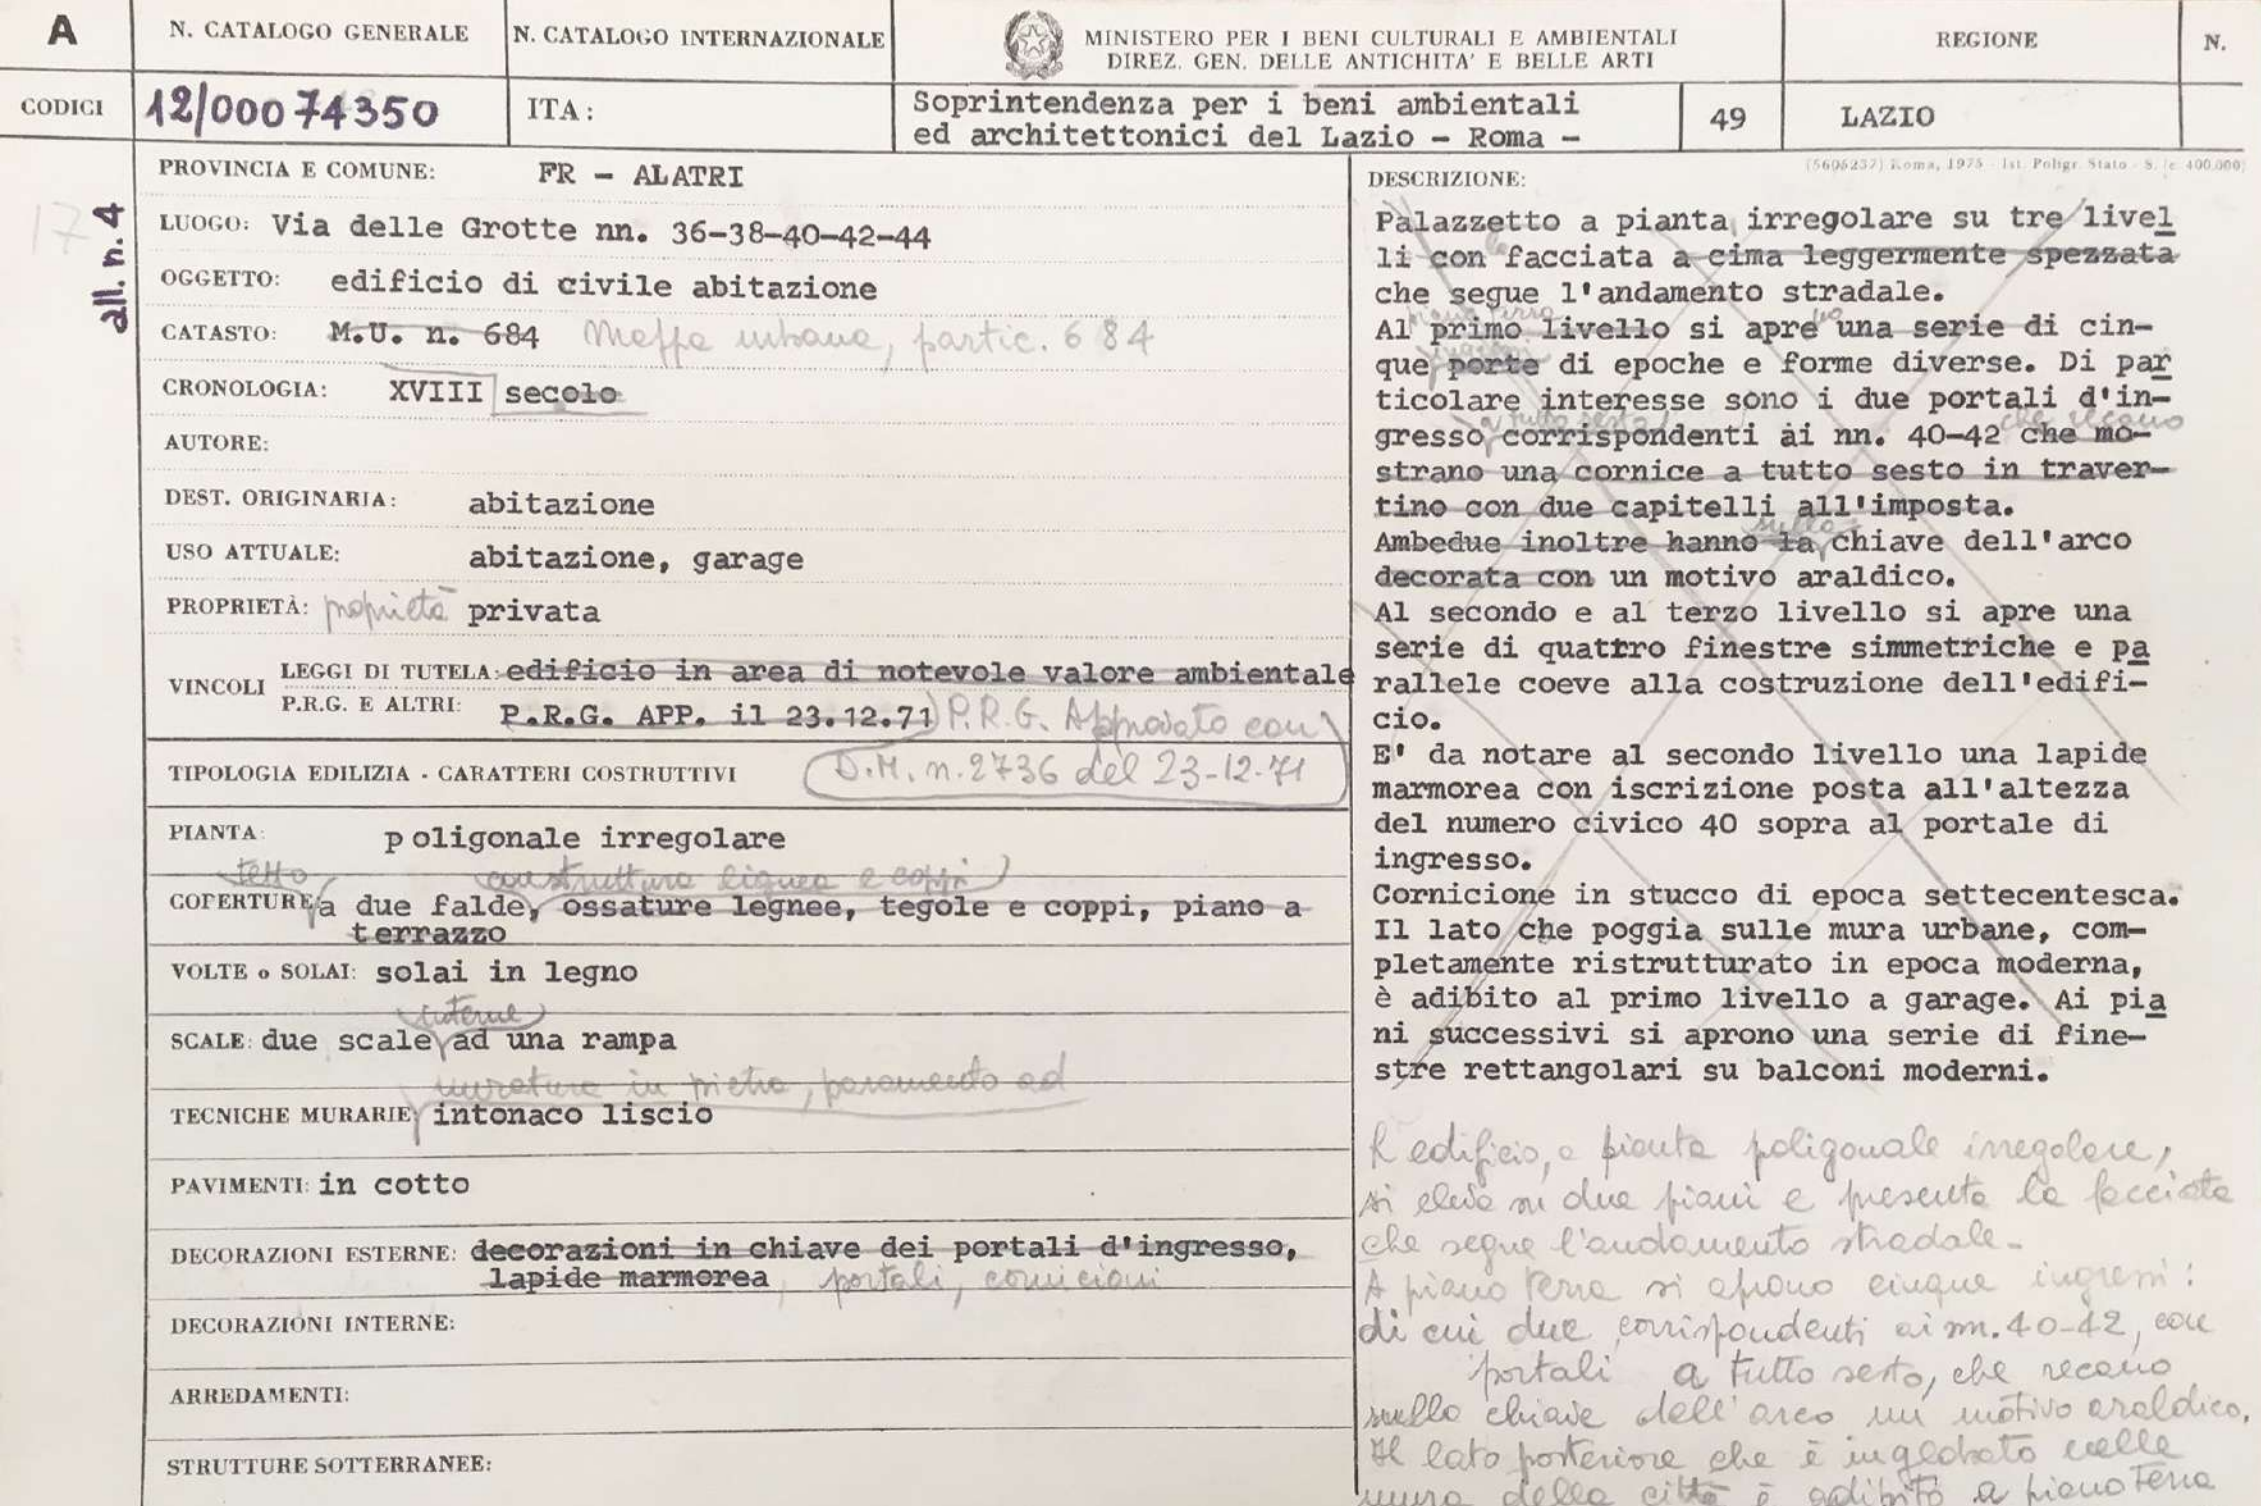 A
N. CATALOGO GENERALE
N. CATALOGO INTERNAZIONALE
MINISTERO PER I BENI CULTURALI E AMBIENTALI
DIREZ. GEN. DELLE ANTICHITA' E BELLE ARTI
REGIONE
N.
CODICI
12/00074350
ITA:
Soprintendenza per i beni ambientali
ed architettonici del Lazio - Roma -
49
LAZIO
(5606237) Roma, 1975 - Ist. Poligr. Stato - S. (c. 400.000)
17
all. n. 4
PROVINCIA E COMUNE: FR - ALATRI
LUOGO: Via delle Grotte nn. 36-38-40-42-44
OGGETTO: edificio di civile abitazione
CATASTO: M.U. n. 684 Mappa urbana, partic. 684
CRONOLOGIA: XVIII secolo
AUTORE:
DEST. ORIGINARIA: abitazione
USO ATTUALE: abitazione, garage
PROPRIETÀ: proprietà privata
VINCOLI
LEGGI DI TUTELA: edificio in area di notevole valore ambientale
P.R.G. E ALTRI: P.R.G. APP. il 23.12.71 P.R.G. Approvato con
D.M. n. 2736 del 23-12-71
TIPOLOGIA EDILIZIA - CARATTERI COSTRUTTIVI
PIANTA: poligonale irregolare
tetto con struttura lignea e coppi
COPERTURE: a due falde, ossature legnee, tegole e coppi, piano a
terrazzo
VOLTE o SOLAI: solai in legno
interne
SCALE: due scale ad una rampa
muratura in pietra, paramento ad
TECNICHE MURARIE: intonaco liscio
PAVIMENTI: in cotto
DECORAZIONI ESTERNE: decorazioni in chiave dei portali d'ingresso,
lapide marmorea, portali, cornicioni
DECORAZIONI INTERNE:
ARREDAMENTI:
STRUTTURE SOTTERRANEE:
DESCRIZIONE:
Palazzetto a pianta irregolare su tre livel
li con facciata a cima leggermente spezzata
che segue l'andamento stradale.
piano terra
Al primo livello si apre una serie di cin-
ingressi
que porte di epoche e forme diverse. Di par
ticolare interesse sono i due portali d'in-
a tutto sesto che recano
gresso corrispondenti ai nn. 40-42 che mo-
strano una cornice a tutto sesto in traver-
tino con due capitelli all'imposta.
sulla
Ambedue inoltre hanno la chiave dell'arco
decorata con un motivo araldico.
Al secondo e al terzo livello si apre una
serie di quattro finestre simmetriche e pa
rallele coeve alla costruzione dell'edifi-
cio.
E' da notare al secondo livello una lapide
marmorea con iscrizione posta all'altezza
del numero civico 40 sopra al portale di
ingresso.
Cornicione in stucco di epoca settecentesca.
Il lato che poggia sulle mura urbane, com-
pletamente ristrutturato in epoca moderna,
è adibito al primo livello a garage. Ai pia
ni successivi si aprono una serie di fine-
stre rettangolari su balconi moderni.
L'edificio, a pianta poligonale irregolare,
si eleva su due piani e presenta la facciata
che segue l'andamento stradale.
A piano terra si aprono cinque ingressi:
di cui due corrispondenti ai nn. 40-42, con
portali a tutto sesto, che recano
sulla chiave dell'arco un motivo araldico.
Il lato posteriore che è inglobato nelle
mura della città è adibito a piano terra